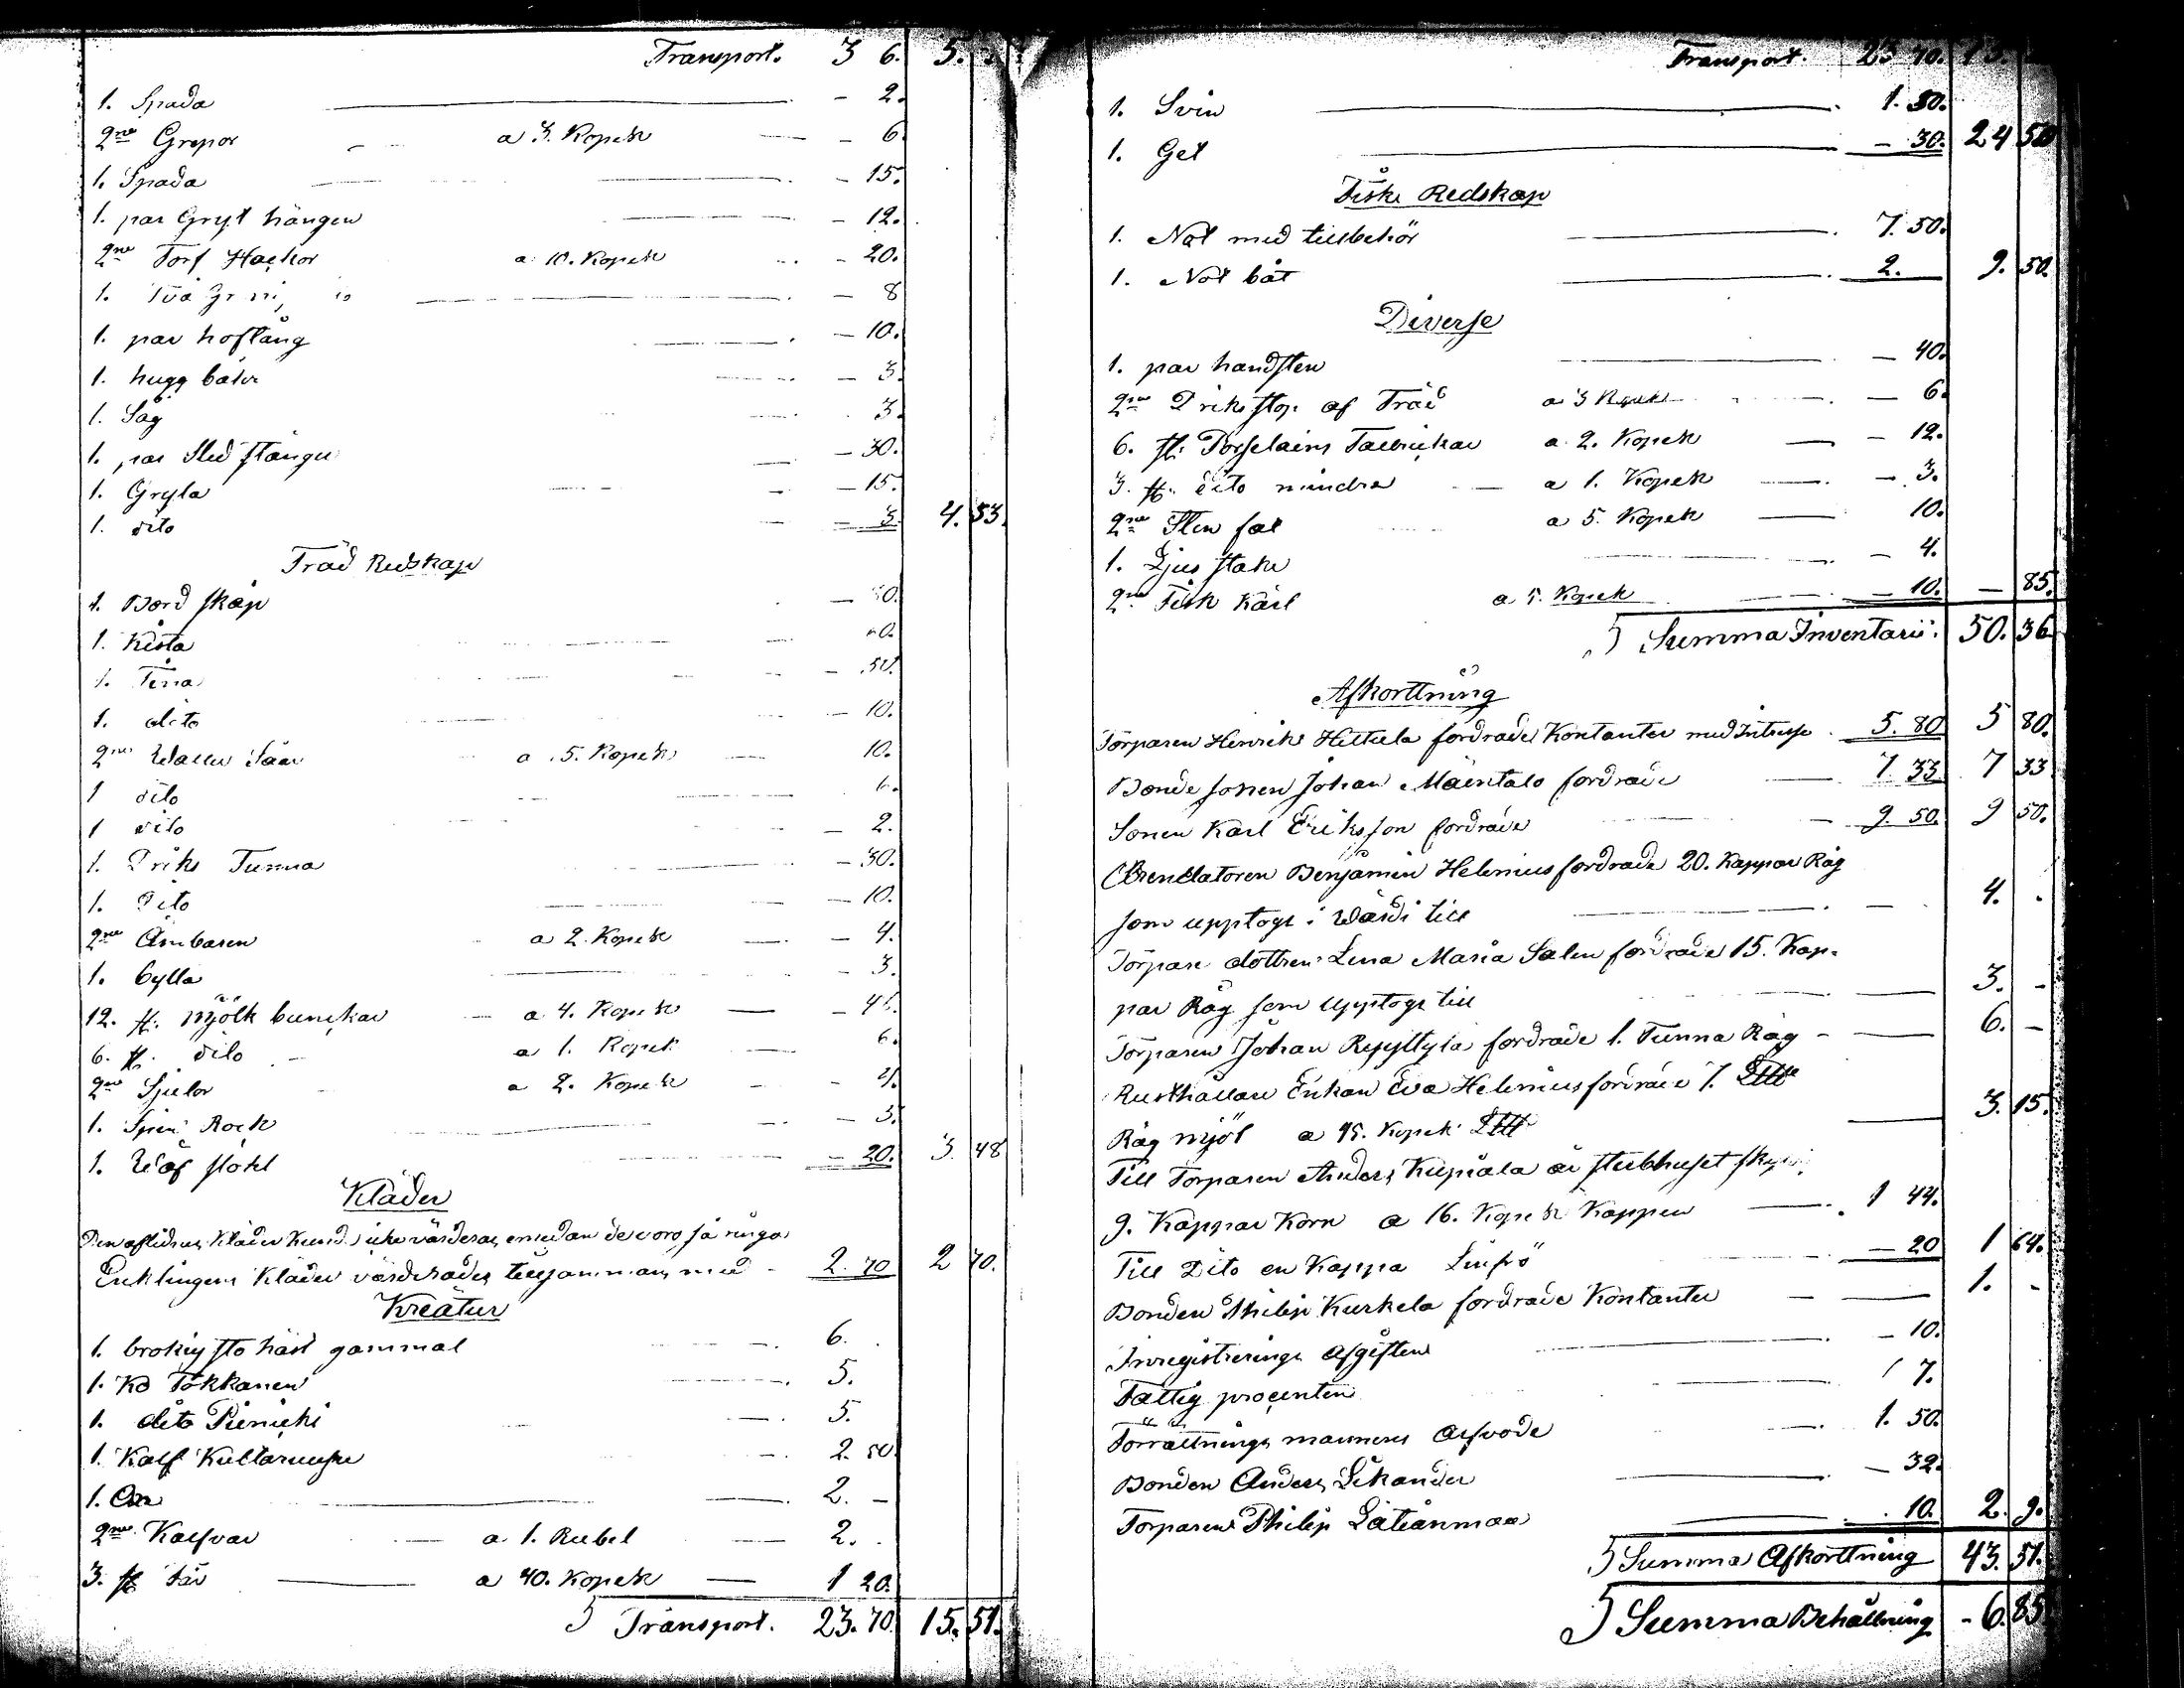 Transport. 3 6. 5.
1. Spada — 2.
2ne Grepor a 3. Kopek — 6.
1. Spada — 15.
1. par Gryt hängen — 12.
2ne Torf Hackor a 10. Kopek — 20.
1. Två — 8
1. par hoftång — 10.
1. hugg bätt — 3.
1. Såg 3.
1. par Sled stånger — 30.
1. Gryta — 15.
1. dito — 3. 4. 53.
Träd Redskap
1. Bord skåp —
1. Kista
1. Tina — 50.
1. dito — 10.
2ne Watten Såar a 5. Kopek 10.
1 dito
1 dito — 2.
1. Driks Tunna — 30.
1. Dito — 10.
2ne Ämbaren a 2. Kopek — 4.
1. bytta — 3.
12. st. Mjölk bunckar a 4. Kopek — 48.
6. st. dito a 1. Kopek 6.
2ne Sjelor a 2. Kopek — 4.
1. Spin Rock — 3.
1. Wäf stohl — 20. 3. 48
Kläder
Den aflidnes Kläder Kund icke värderas, emedan de voro så ringa
Encklingens Kläder värderades tillsammans med — 2. 70 2 70.
Kreatur
1. brokig sto häst gammal 6.
1. Ko Tökkanen 5.
1. dito Pienicki 5.
1. Kalf Kultaruusu 2. 50
1. Oxe 2. —
2ne Kalfvar a 1. Rubel 2.
3. st får a 40. Kopek 1 20.
Transport. 23. 70. 15. 51.
Transport. 23 70. 15.
1. Svin 1. 50.
1. Get — 30. 24 50
Fiske Redskap
1. Not med tillbehör 7. 50.
1. Not båt 2. 9. 50.
Diverse
1. par handsten — 40.
2ne Driks stop af Träd a 3 Kopek — 6.
6. st. Porselains Talrickar a 2. Kopek — 12.
3. st. dito mindre a 1. Kopek — 3.
2ne Sten fat a 5. Kopek 10.
1. Ljus stake — 4.
2ne Fisk Kärl a 5. Kopek — 10. — 85.
Summa Inventarii. 50. 36
Afkorttning
Torparen Henrik Hittula fordrade Kontanter med Intresse. 5. 80 5 80.
Bonde sonen Johan Mäentalo fordrade 7. 33 7 33
Sonen Karl Eriksson fordrade 9. 50. 9 50.
Arendatoren Benjamin Helenius fordrade 20. Kappar Råg
som upptogs i Wärdi till — 4.
Torpare dottren Lena Maria Salen fordrade 15. Kap-
par Råg som upptogs till 3. -
Torparen Johan Repyttylä fordrade 1. Tunna Råg — 6. -
Rusthållare Enkan Eva Helenius fordrade 7. L℔
Råg mjöl a 45. Kopek L℔ 3. 15.
Till Torparen Anders Kupiala är sterbhuset skyldig
9. Kappar Korn a 16. Kopek Kappen 1 44.
Till Dito en Kappa Linfrö — 20 1 64.
Bonden Philip Kurkela fordrade Kontanter 1. -
Inregistrerings Afgiften — 10.
Fattig procenten 7.
Förrättnings mannens Arfvode 1. 50.
Bonden Anders Sikander — 32.
Torparen Philip Latianmaa 10. 2. 9.
Summa Afkorttning 43. 51.
Summa Behållning - 6. 85